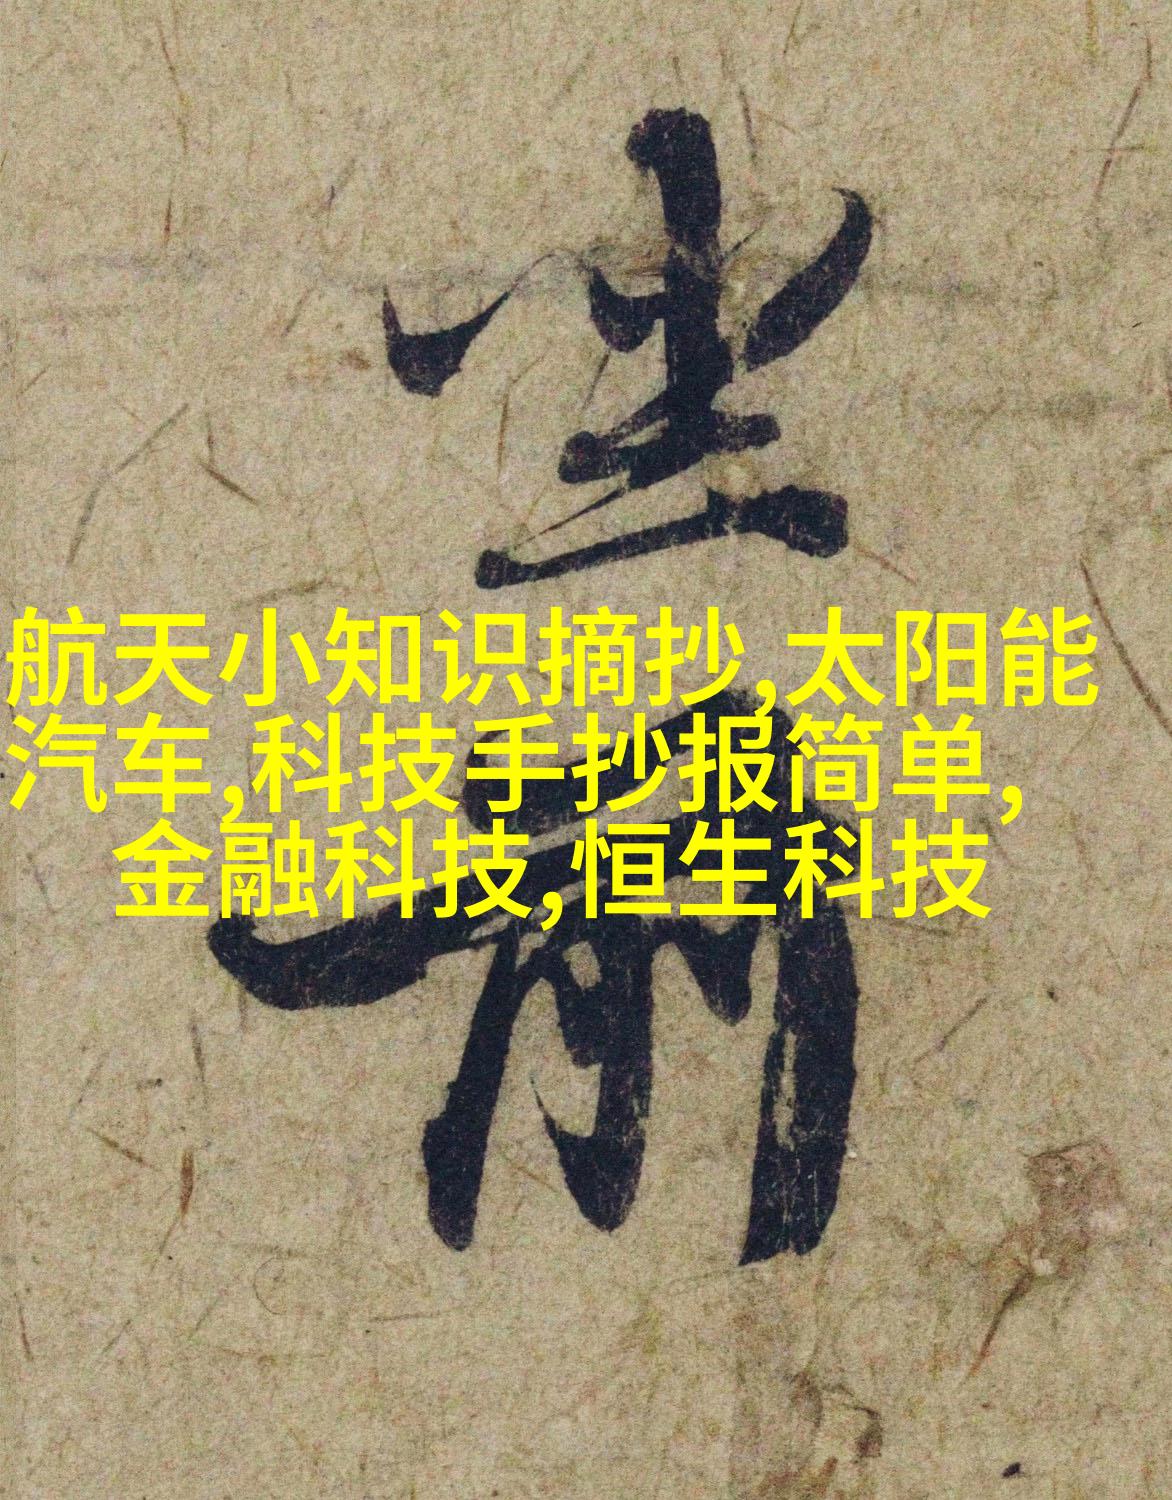 航天小知识摘抄,太阳能
汽车,科技手抄报简单,
金融科技,恒生科技